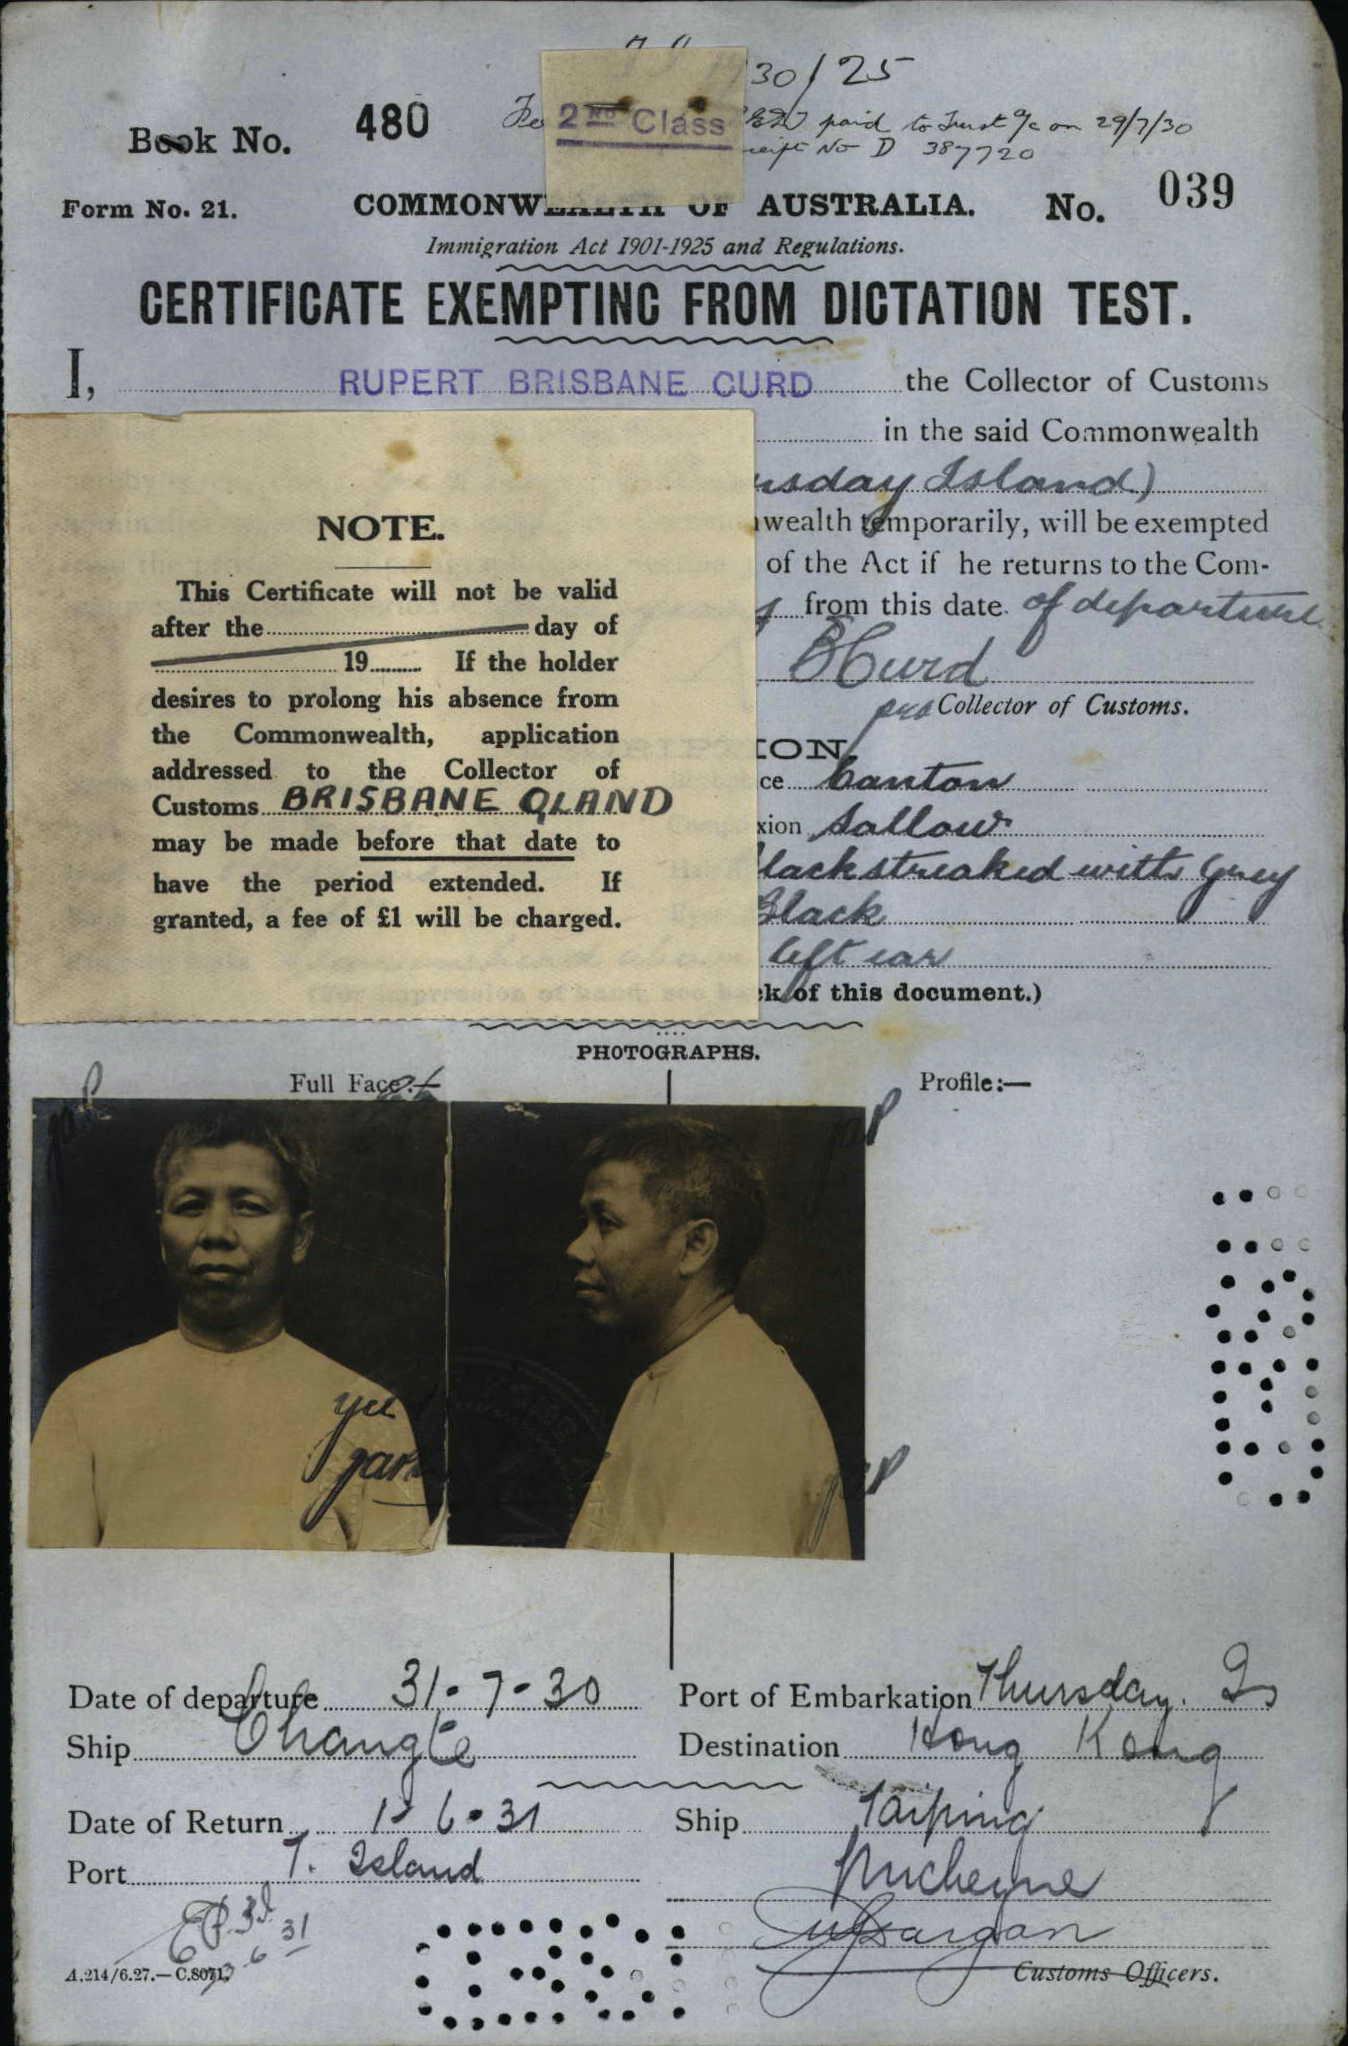 30/25
2ND Class
paid to Trust a/c on 29/7/30
Book No. 480
No D 387720
Form No. 21. COMMONWEALTH OF AUSTRALIA. No. 039
Immigration Act 1901-1925 and Regulations.
CERTIFICATE EXEMPTING FROM DICTATION TEST.
I, RUPERT BRISBANE CURD the Collector of Customs
in the said Commonwealth
Island)
temporarily, will be exempted
of the Act if he returns to the Com-
from this date of departure
Curd
pro Collector of Customs.
Canton
Sallow
streaked with Grey
Black
left ear
of this document.)
NOTE.
This Certificate will not be valid
after the day of
19 If the holder
desires to prolong his absence from
the Commonwealth, application
addressed to the Collector of
Customs BRISBANE QLAND
may be made before that date to
have the period extended. If
granted, a fee of £1 will be charged.
PHOTOGRAPHS.
Full Face:—
Profile:—
Yee
Date of departure 31-7-30 Port of Embarkation Thursday. Is
Ship Changte Destination Hong Kong
Date of Return 1-6-31 Ship Taiping
Port T. Island
31
A.214/6.27.—C.8071.
Customs Officers.